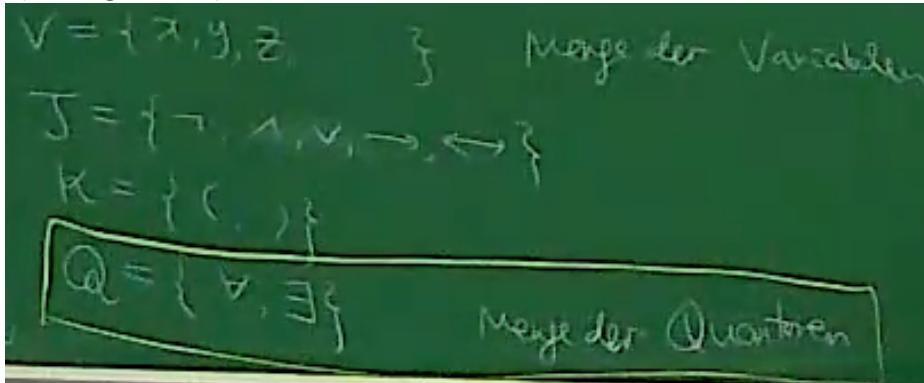 V = { x, y, z, } Menge der Variablen
J = { ¬, ∧, ∨, →, ↔ }
K = { ( , ) }
Q = { ∀, ∃ } Menge der Quantoren